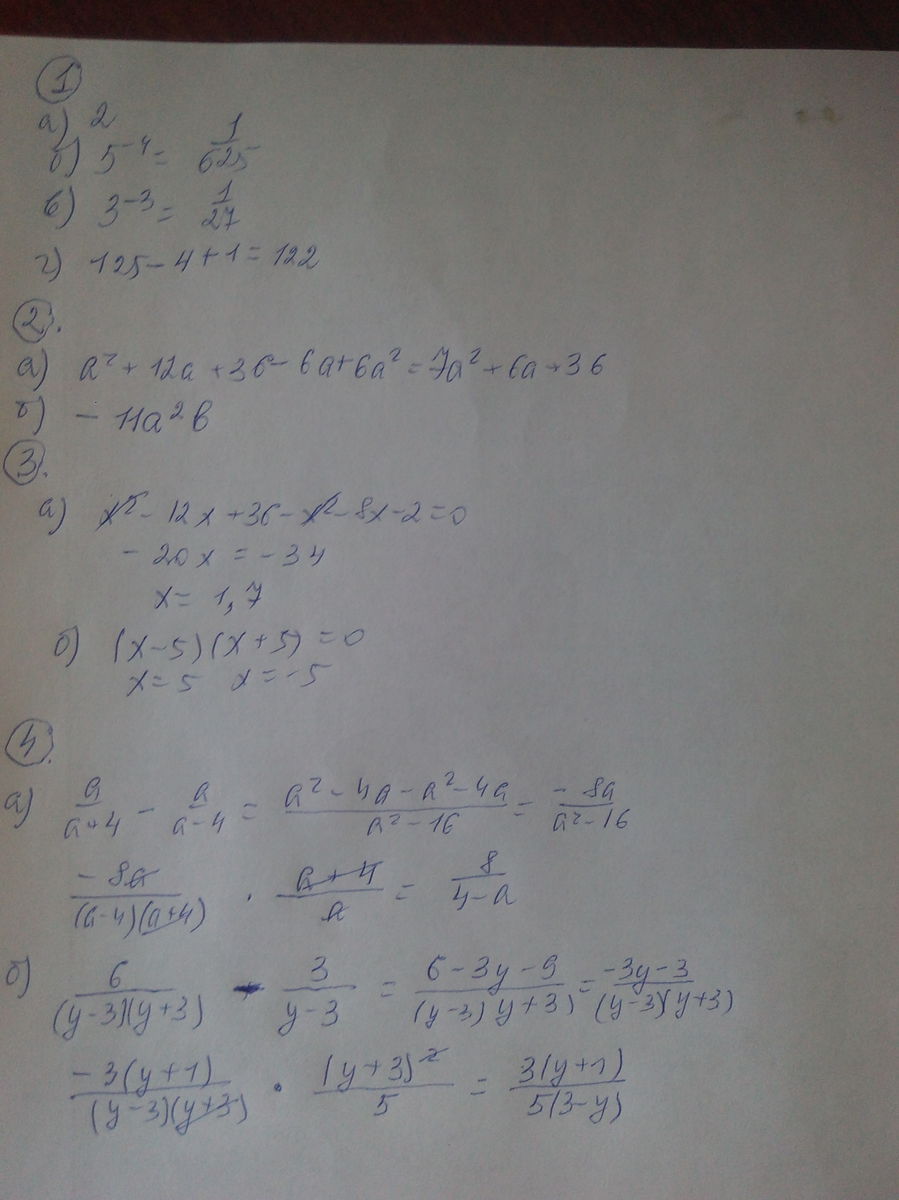 1
а) 2
б) 5⁻⁴ = 1/625
в) 3⁻³ = 1/27
г) 125 - 4 + 1 = 122
2.
а) a² + 12a + 36 - 6a + 6a² = 7a² + 6a + 36
б) - 11a²b
3.
а) x² - 12x + 36 - x² - 8x - 2 = 0
- 20x = - 34
x = 1,7
б) (x - 5)(x + 5) = 0
x = 5 x = -5
4.
а) a/(a+4) - a/(a-4) = (a² - 4a - a² - 4a)/(a² - 16) = -8a/(a² - 16)
-8a/((a-4)(a+4)) · (a+4)/a = 8/(4-a)
б) 6/((y-3)(y+3)) - 3/(y-3) = (6 - 3y - 9)/((y-3)(y+3)) = (-3y-3)/((y-3)(y+3))
-3(y+1)/((y-3)(y+3)) · (y+3)²/5 = 3(y+1)/5(3-y)